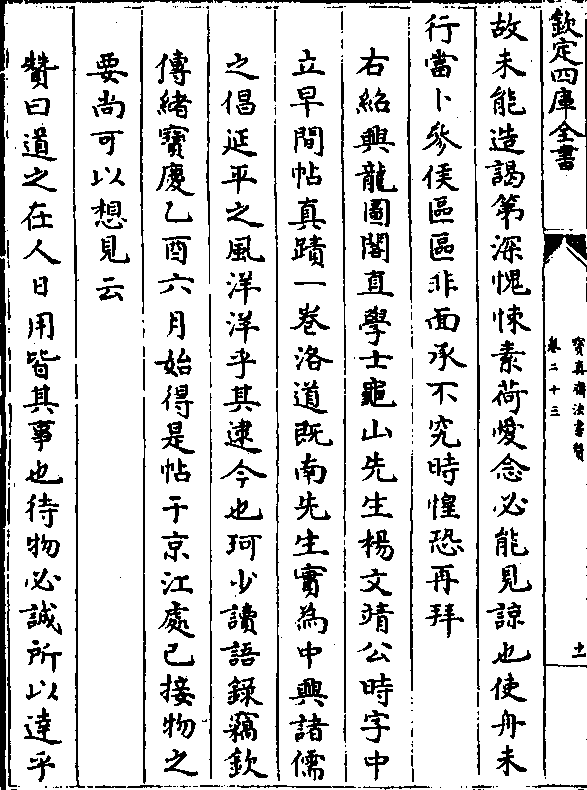 欽定四庫全書
寳真齋法書贊
卷二十三
十一
故未能造謁第深愧悚素荷愛念必能見諒也使舟未
行當卜參侯區區非面承不究時惶恐再拜
右紹興龍圖閣直學士龜山先生楊文靖公時字中
立早間帖真蹟一卷洛道既南先生實為中興諸儒
之倡延平之風洋洋乎其逮今也珂少讀語録竊欽
傳緒寶慶乙酉六月始得是帖于京江處已接物之
要尚可以想見云
贊曰道之在人日用皆其事也待物必誠所以達乎